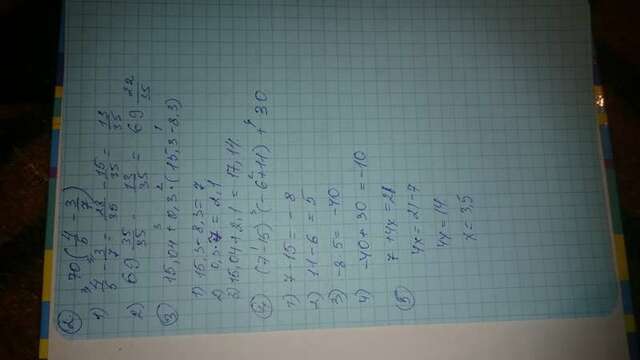 ② 70(4/5 - 3/7)
1) 4/5 - 3/7 = 28/35 - 15/35 = 13/35
2) 69 35/35 - 13/35 = 69 22/35
③ 15,04 + 0,3 · (15,3 - 8,3)
1) 15,3 - 8,3 = 7
2) 0,3 · 7 = 2,1
3) 15,04 + 2,1 = 17,14
④ (7 - 15) · (-6 + 11) + 30
1) 7 - 15 = -8
2) 11 - 6 = 5
3) -8 · 5 = -40
4) -40 + 30 = -10
⑤ 7 + 4x = 21
4x = 21 - 7
4x = 14
x = 3,5